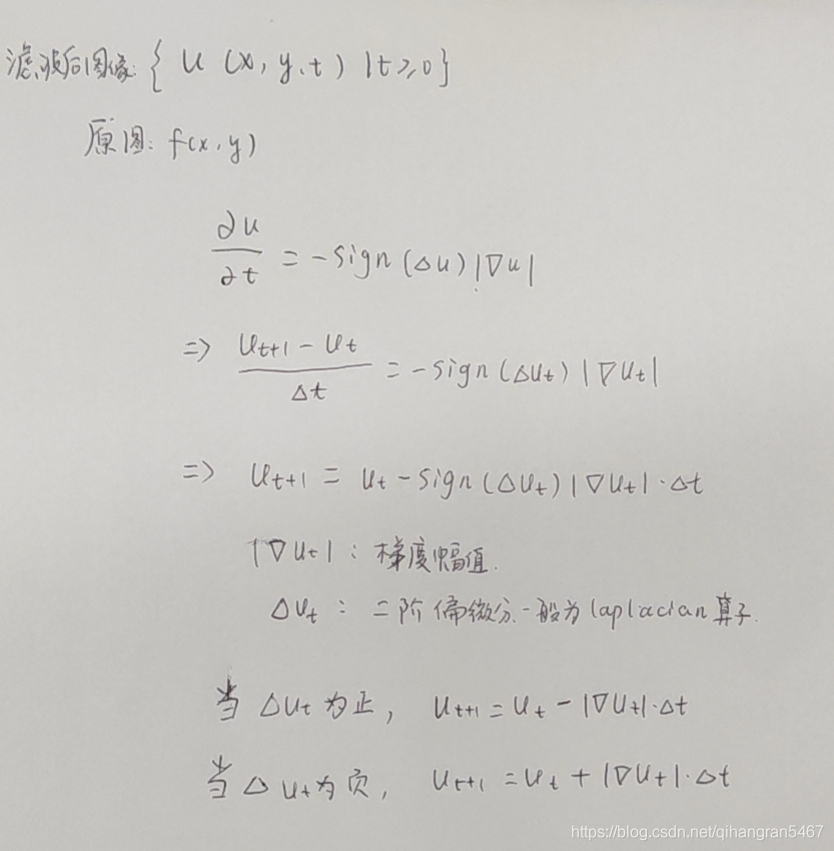 滤波后图像: { u (x, y, t) | t ≥ 0 }
原图: f(x, y)
∂u/∂t = -sign(Δu)|∇u|
=> (u_{t+1} - u_t)/Δt = -sign(Δu_t)|∇u_t|
=> u_{t+1} = u_t - sign(Δu_t)|∇u_t|·Δt
|∇u_t| : 梯度幅值.
Δu_t : 二阶偏微分.一般为laplacian算子.
当 Δu_t 为正, u_{t+1} = u_t - |∇u_t|·Δt
当 Δu_t 为负, u_{t+1} = u_t + |∇u_t|·Δt
https://blog.csdn.net/qihangran5467